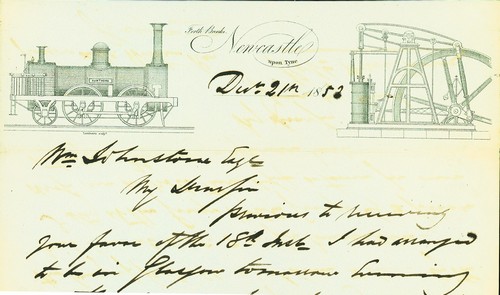 Forth Banks
Newcastle
Upon Tyne
Decr. 21st 1852
HAWTHORN
Wm Johnstone Esqr
My Dear Sir
Previous to receiving
your favor of the 18th Inst. I had arranged
to be in Glasgow tomorrow Evening